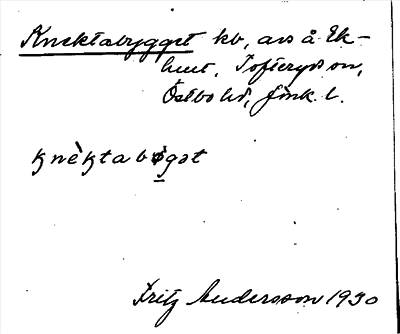 Knektabygget kb, avs å Ek-
hult, Tofteryds sn,
Östbo hd, Jönk. l.
knèktabø̱gət
Fritz Andersson 1930